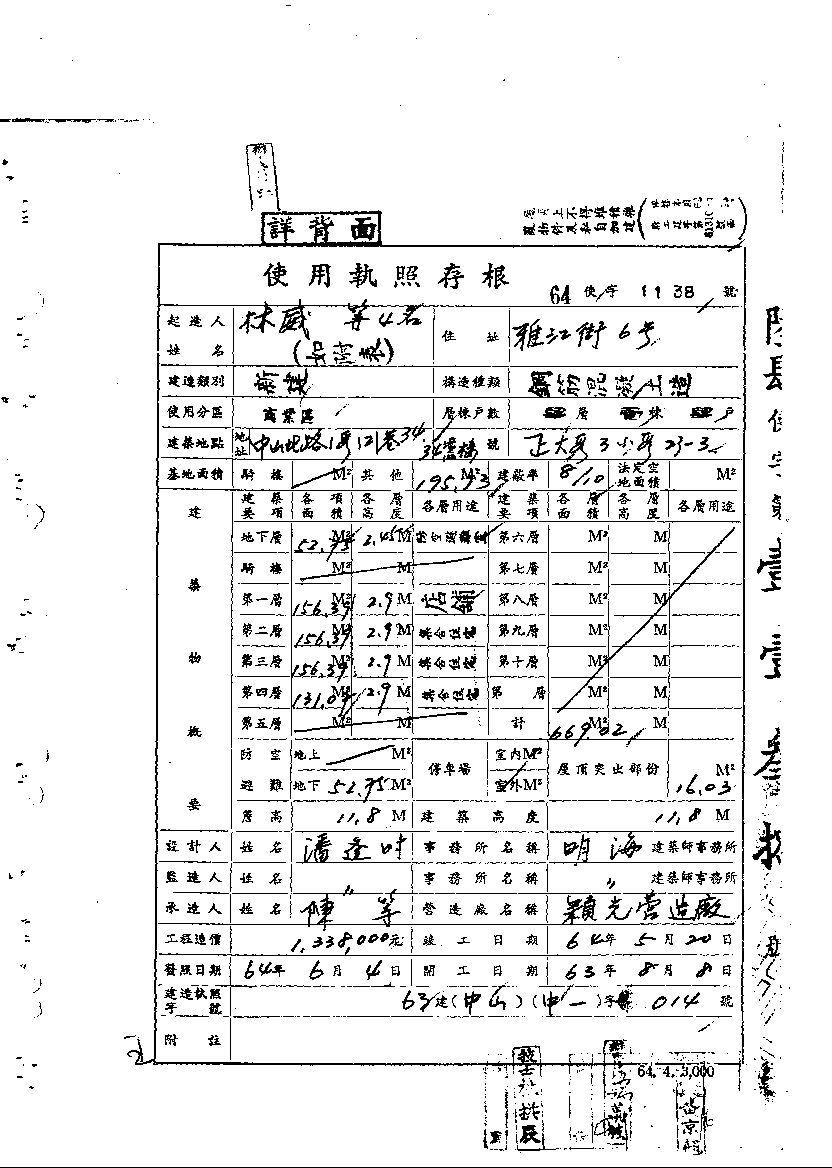 詳背面
使用執照存根
64 使字 1138 號
起造人姓名 林威 等4名 (如附表) 住址 雅江街6号
建造類別 新建 構造種類 鋼筋混凝土造
使用分區 商業區 層棟戶數 層 棟 戶
建築地點 地址 中山北路1段121巷34 號 正大段3小段23-3
基地面積 騎樓 M² 其他 195.93 M² 建蔽率 8/10 法定空地面積 M²
建築物概要 建築要項 各項面積 各層高度 各層用途 建築要項 各層面積 各層高度 各層用途
地下層 52.75 M² 2.45 M 第六層 M² M
騎樓 M² M 第七層 M² M
第一層 156.39 M² 2.9 M 店舖 第八層 M² M
第二層 156.39 M² 2.9 M 集合住宅 第九層 M² M
第三層 156.39 M² 2.9 M 集合住宅 第十層 M² M
第四層 131.07 M² 2.9 M 集合住宅 第 層 M² M
第五層 M² M 計 669.02 M² M
防空 地上 M² 停車場 室內M² 屋頂突出部份 M²
避難 地下 52.75 M² 室外M² 16.03
簷高 11.8 M 建築高度 11.8 M
設計人 姓名 潘逢時 事務所名稱 明海 建築師事務所
監造人 姓名 〃 事務所名稱 〃 建築師事務所
承造人 姓名 陳 等 營造廠名稱 穎光營造廠
工程造價 1,338,000元 竣工日期 64年5月20日
發照日期 64年6月4日 開工日期 63年8月8日
建造執照字號 63建(中山)(中一)字第014號
附註
64. 4. 3,000